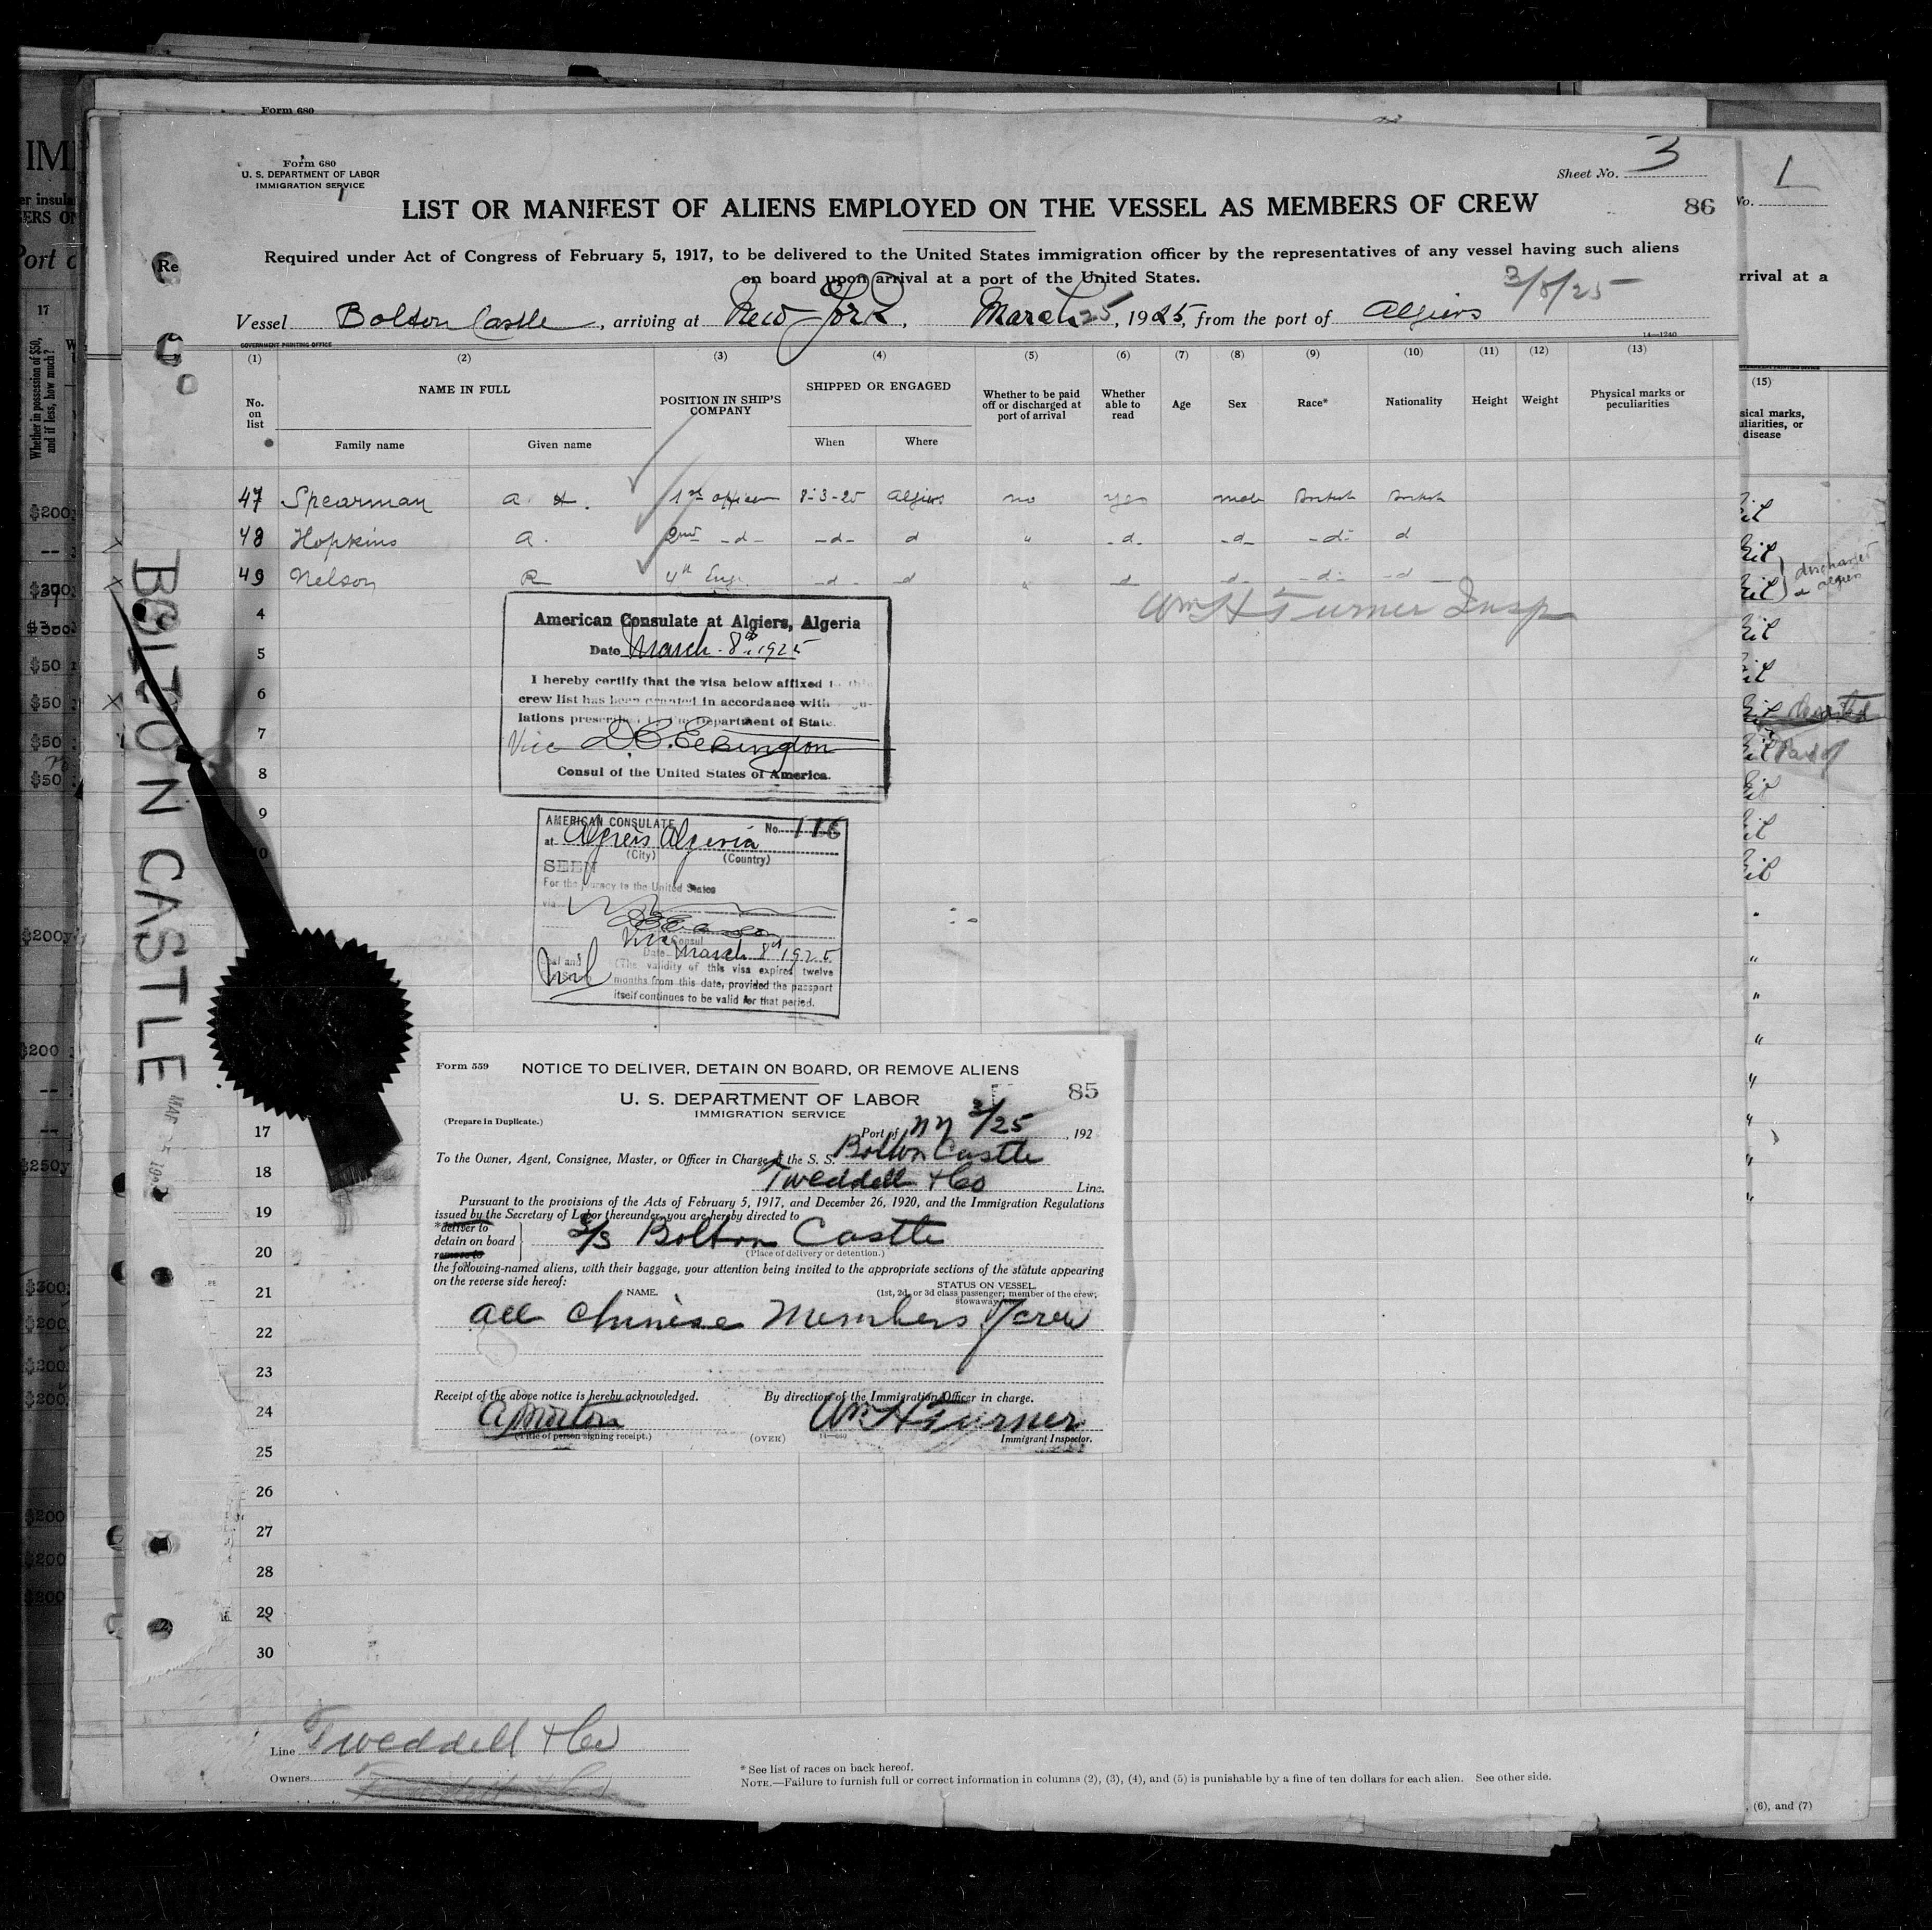 Form 680
Form 680
U. S. DEPARTMENT OF LABOR
IMMIGRATION SERVICE
Sheet No. 3
LIST OR MANIFEST OF ALIENS EMPLOYED ON THE VESSEL AS MEMBERS OF CREW
86
Required under Act of Congress of February 5, 1917, to be delivered to the United States immigration officer by the representatives of any vessel having such aliens
on board upon arrival at a port of the United States.
3/8/25
Vessel Bolton Castle, arriving at New York, March 25, 1925, from the port of Algiers
GOVERNMENT PRINTING OFFICE
14—1240
(1) (2) (3) (4) (5) (6) (7) (8) (9) (10) (11) (12) (13)
No. on list
NAME IN FULL
Family name Given name
POSITION IN SHIP'S COMPANY
SHIPPED OR ENGAGED
When Where
Whether to be paid off or discharged at port of arrival
Whether able to read
Age
Sex
Race*
Nationality
Height
Weight
Physical marks or peculiarities
47 Spearman A. H. 1st officer 8-3-25 Algiers no yes male British British
48 Hopkins A. 2nd -d- -d- d " -d- -d- -d- d
49 Nelson R 4th Eng. -d- -d " -d -d- -d- -d
Wm H Turner Insp
4
5
6
7
8
9
10
American Consulate at Algiers, Algeria
Date March 8th 1925
I hereby certify that the visa below affixed to this
crew list has been granted in accordance with regu-
lations prescribed by the Department of State.
Vice
Consul of the United States of America.
AMERICAN CONSULATE No. 116
at Algiers Algeria
(City) (Country)
SEEN
For the journey to the United States
via
Vice Consul
Date March 8th 1925
(The validity of this visa expires twelve
months from this date, provided the passport
itself continues to be valid for that period.
BOLTON CASTLE
17
18
19
20
21
22
23
24
25
26
27
28
29
30
Form 559
NOTICE TO DELIVER, DETAIN ON BOARD, OR REMOVE ALIENS
85
U. S. DEPARTMENT OF LABOR
IMMIGRATION SERVICE
(Prepare in Duplicate.)
Port of NY 3/25, 192
To the Owner, Agent, Consignee, Master, or Officer in Charge of the S. S. Bolton Castle
Tweddell & Co Line.
Pursuant to the provisions of the Acts of February 5, 1917, and December 26, 1920, and the Immigration Regulations
issued by the Secretary of Labor thereunder, you are hereby directed to
*deliver to
detain on board S/S Bolton Castle
remove to
(Place of delivery or detention.)
the following-named aliens, with their baggage, your attention being invited to the appropriate sections of the statute appearing
on the reverse side hereof:
NAME.
STATUS ON VESSEL.
(1st, 2d, or 3d class passenger; member of the crew;
stowaway, etc.)
All Chinese Members of crew
Receipt of the above notice is hereby acknowledged. By direction of the Immigration Officer in charge.
A Morton Wm H Turner
(Title of person signing receipt.) (OVER) Immigrant Inspector.
Line Tweddell & Co
Owners
* See list of races on back hereof.
NOTE.—Failure to furnish full or correct information in columns (2), (3), (4), and (5) is punishable by a fine of ten dollars for each alien. See other side.
, (6), and (7)